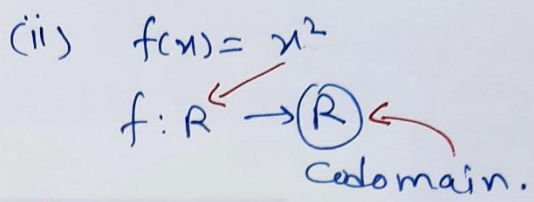 (ii) f(x) = x²
f : R → R
Codomain.